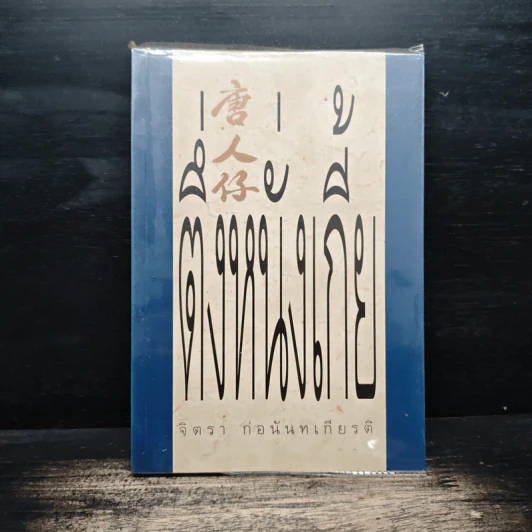 唐人仔
ตึ่งหนั่งเกี้ย
จิตรา ก่อนันทเกียรติ